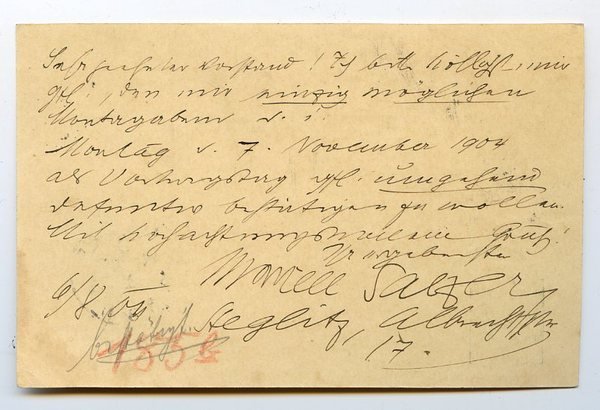 Sehr geehrter Vorstand! Ich bitte höflichst, mir
gfl., den mir einzig möglichen
Montagabend d. i.
Montag d. 7. November 1904
als Vortragstag gfl. umgehend
definitiv bestätigen zu wollen.
Mit hochachtungsvollem Gruß!
Ihr ergebenster
Marcell Salzer
6/8 04
Steglitz, Albrechtstr
17.
bestätigt
1554